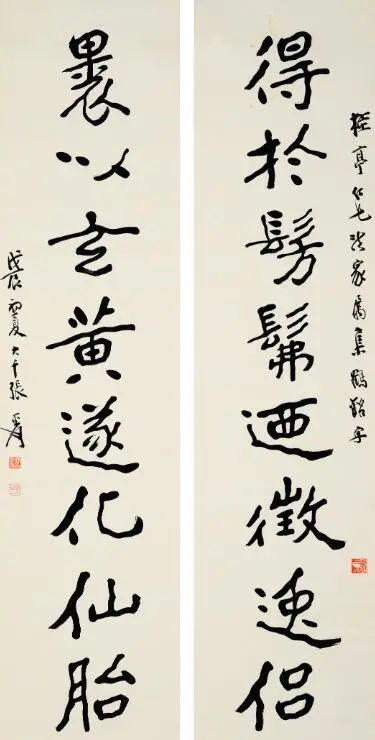 亭仁兄法家属集鶴銘字
得於髣髴迺徵逸侣
裹以玄黃遂化仙胎
戊辰夏大千張爰